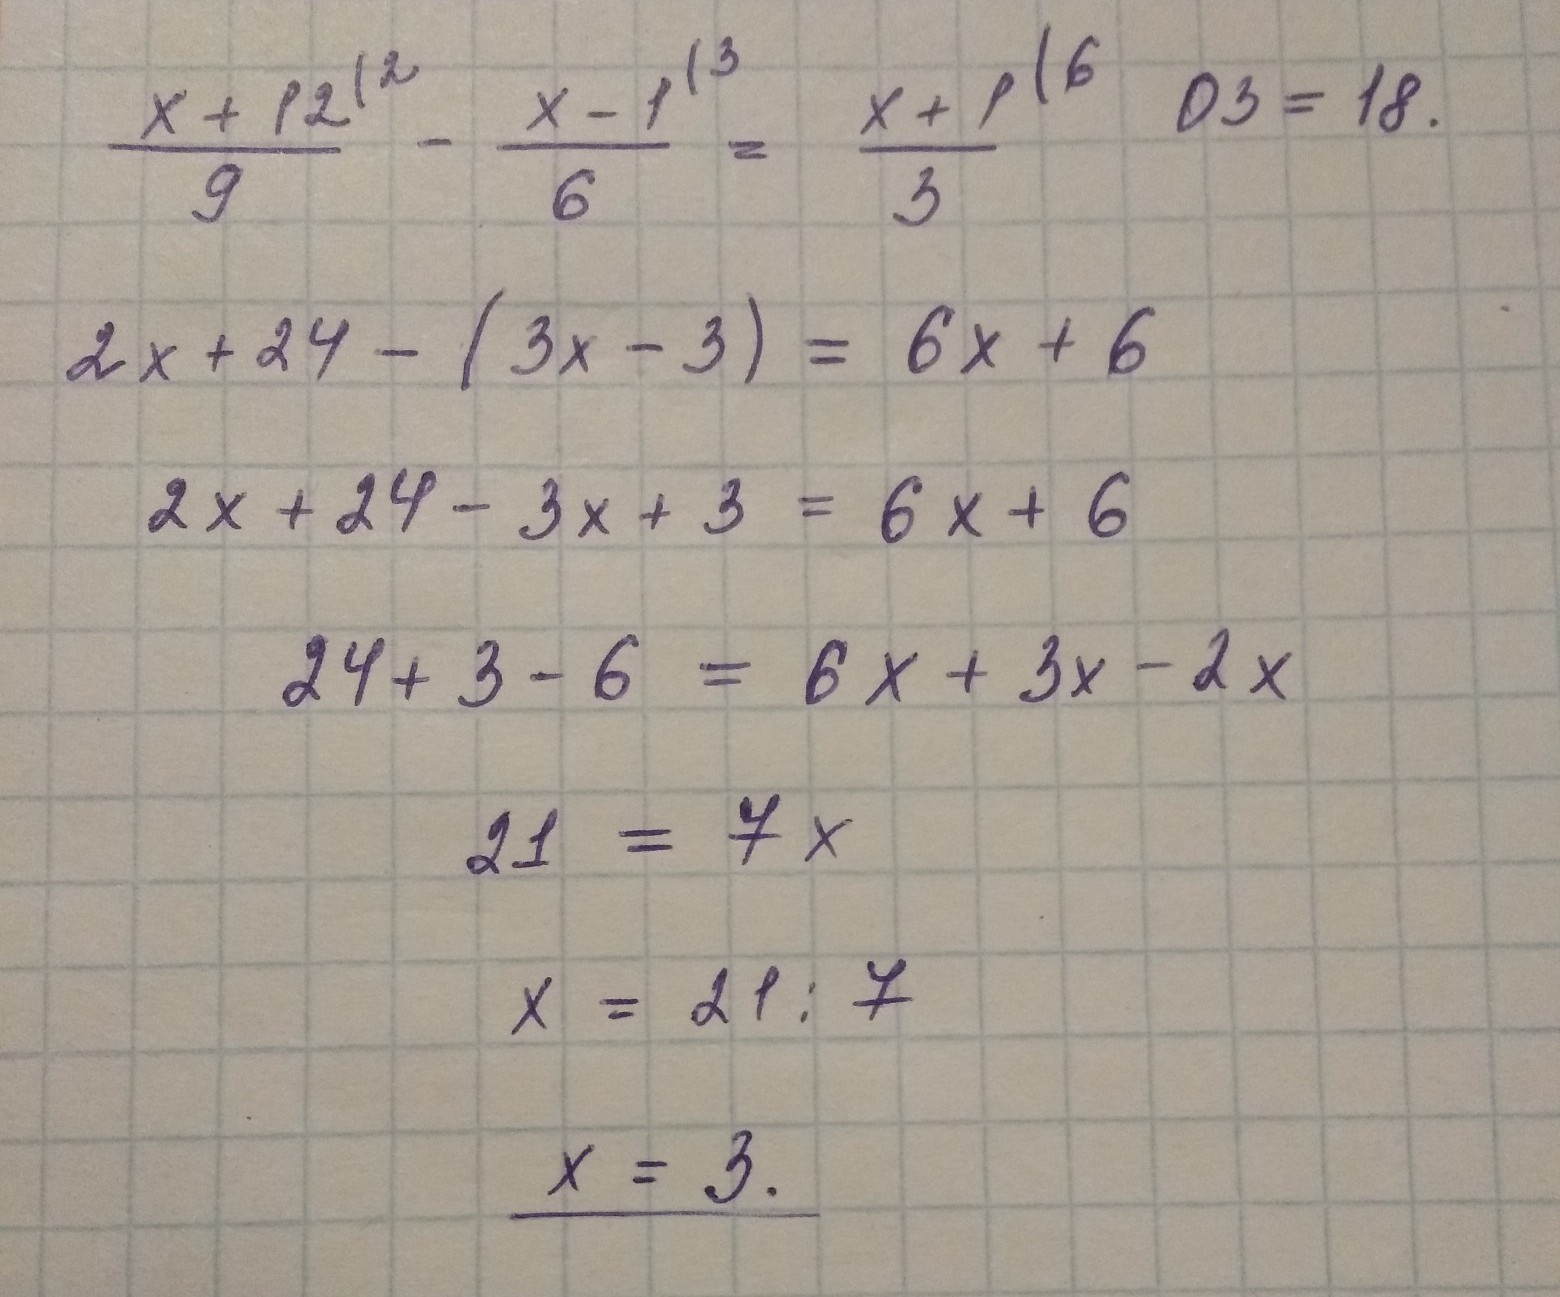 (x + 12)/9 (2 - (x - 1)/6 (3 = (x + 1)/3 (6 ОЗ = 18.
2x + 24 - (3x - 3) = 6x + 6
2x + 24 - 3x + 3 = 6x + 6
24 + 3 - 6 = 6x + 3x - 2x
21 = 7x
x = 21 : 7
x = 3.